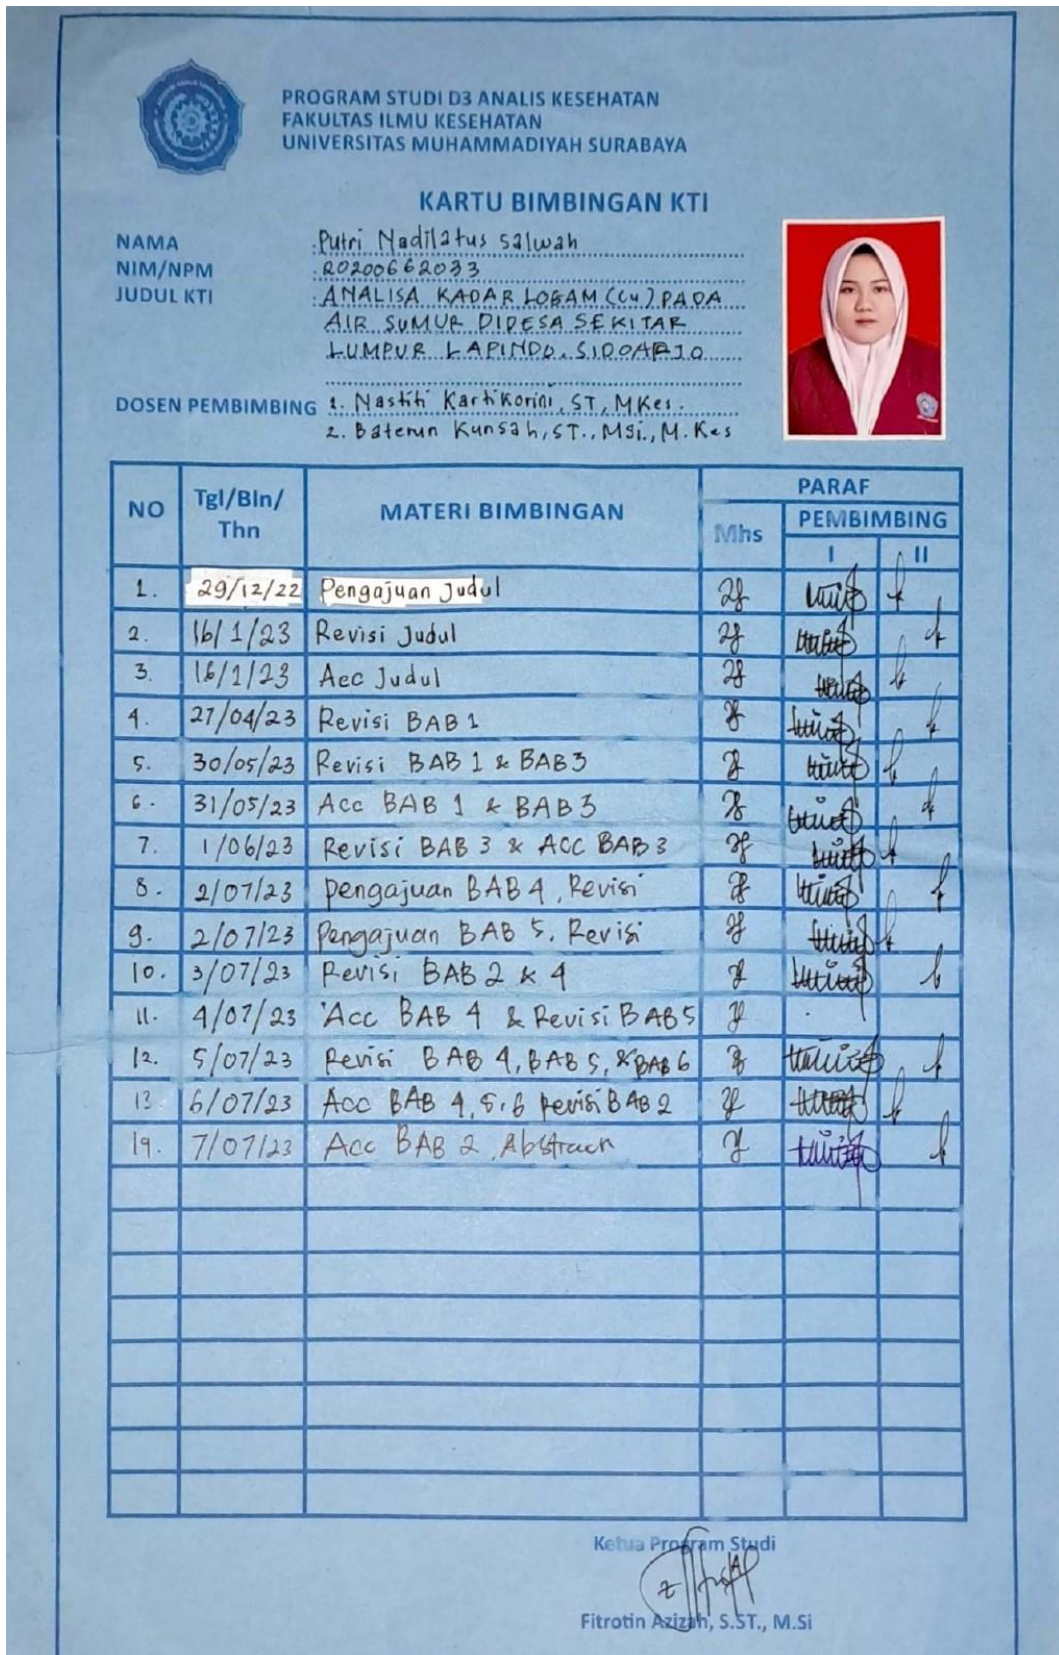 PROGRAM STUDI D3 ANALIS KESEHATAN
FAKULTAS ILMU KESEHATAN
UNIVERSITAS MUHAMMADIYAH SURABAYA
KARTU BIMBINGAN KTI
NAMA : Putri Nadilatus Salwah
NIM/NPM : 20200662033
JUDUL KTI : ANALISA KADAR LOGAM (Cu) PADA
AIR SUMUR DIDESA SEKITAR
LUMPUR LAPINDO, SIDOARJO
DOSEN PEMBIMBING 1. Nastiti Kartikorini, ST, MKes.
2. Baterun Kunsah, ST., MSi., M.Kes
NO Tgl/Bln/Thn MATERI BIMBINGAN PARAF
Mhs PEMBIMBING
I II
1. 29/12/22 Pengajuan Judul
2. 16/1/23 Revisi Judul
3. 16/1/23 Acc Judul
4. 27/04/23 Revisi BAB 1
5. 30/05/23 Revisi BAB 1 & BAB 3
6. 31/05/23 Acc BAB 1 & BAB 3
7. 1/06/23 Revisi BAB 3 & ACC BAB 3
8. 2/07/23 Pengajuan BAB 4, Revisi
9. 2/07/23 Pengajuan BAB 5, Revisi
10. 3/07/23 Revisi BAB 2 & 4
11. 4/07/23 Acc BAB 4 & Revisi BAB 5
12. 5/07/23 Revisi BAB 4, BAB 5, & BAB 6
13 6/07/23 Acc BAB 4, 5, 6 Revisi BAB 2
14. 7/07/23 Acc BAB 2, Abstrach
Ketua Program Studi
Fitrotin Azizah, S.ST., M.Si